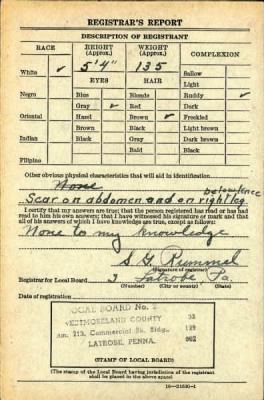 REGISTRAR'S REPORT
DESCRIPTION OF REGISTRANT
RACE HEIGHT (Approx.) WEIGHT (Approx.) COMPLEXION
White ✓ 5'4" 135 Sallow
EYES HAIR Light
Negro Blue Blonde Ruddy ✓
Gray ✓ Red Dark
Oriental Hazel Brown ✓ Freckled
Brown Black Light brown
Indian Black Gray Dark brown
Bald Black
Filipino
Other obvious physical characteristics that will aid in identification
None
below knee
Scar on abdomen and on right leg
I certify that my answers are true; that the person registered has read or has had
read to him his own answers; that I have witnessed his signature or mark and that
all of his answers of which I have knowledge are true, except as follows:
None to my knowledge
S. G. Rummel
(Signature of registrar)
Registrar for Local Board 3 Latrobe, Pa.
(Number) (City or county) (State)
Date of registration
LOCAL BOARD No.
WESTMORELAND COUNTY
Rm. 213, Commercial Bk. Bldg.
LATROBE, PENNA.
(STAMP OF LOCAL BOARD)
(The stamp of the Local Board having jurisdiction of the registrant
shall be placed in the above space.)